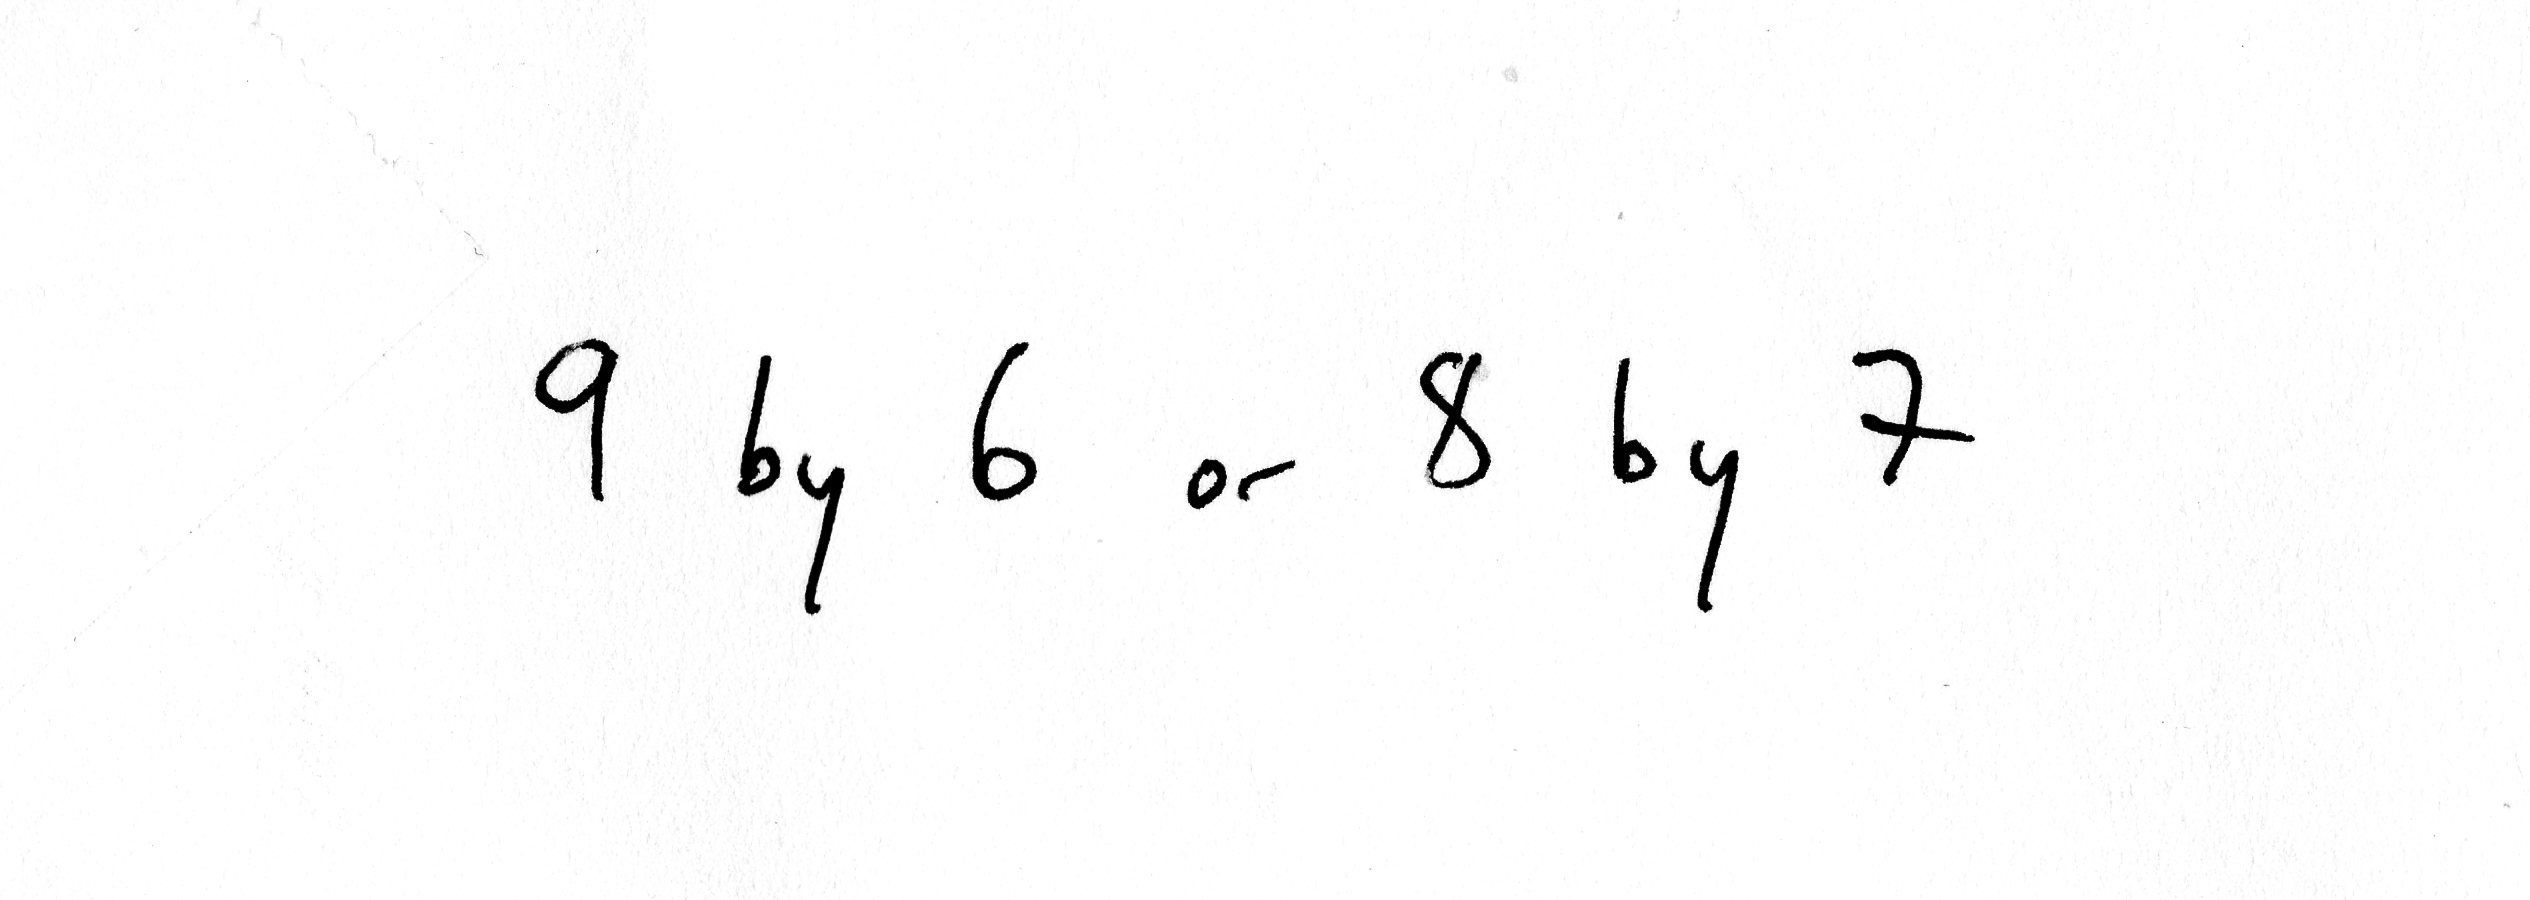 9 by 6 or 8 by 7